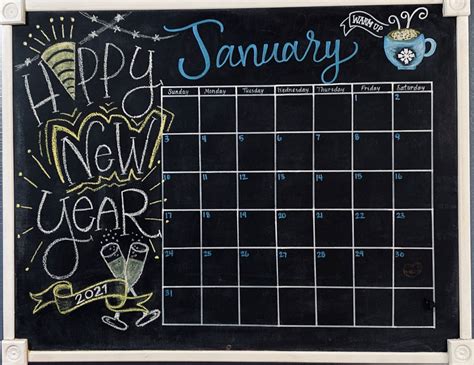 Happy
New
Year
2021
January
WARM UP
Sunday Monday Tuesday Wednesday Thursday Friday Saturday
1 2
3 4 5 6 7 8 9
10 11 12 13 14 15 16
17 18 19 20 21 22 23
24 25 26 27 28 29 30
31